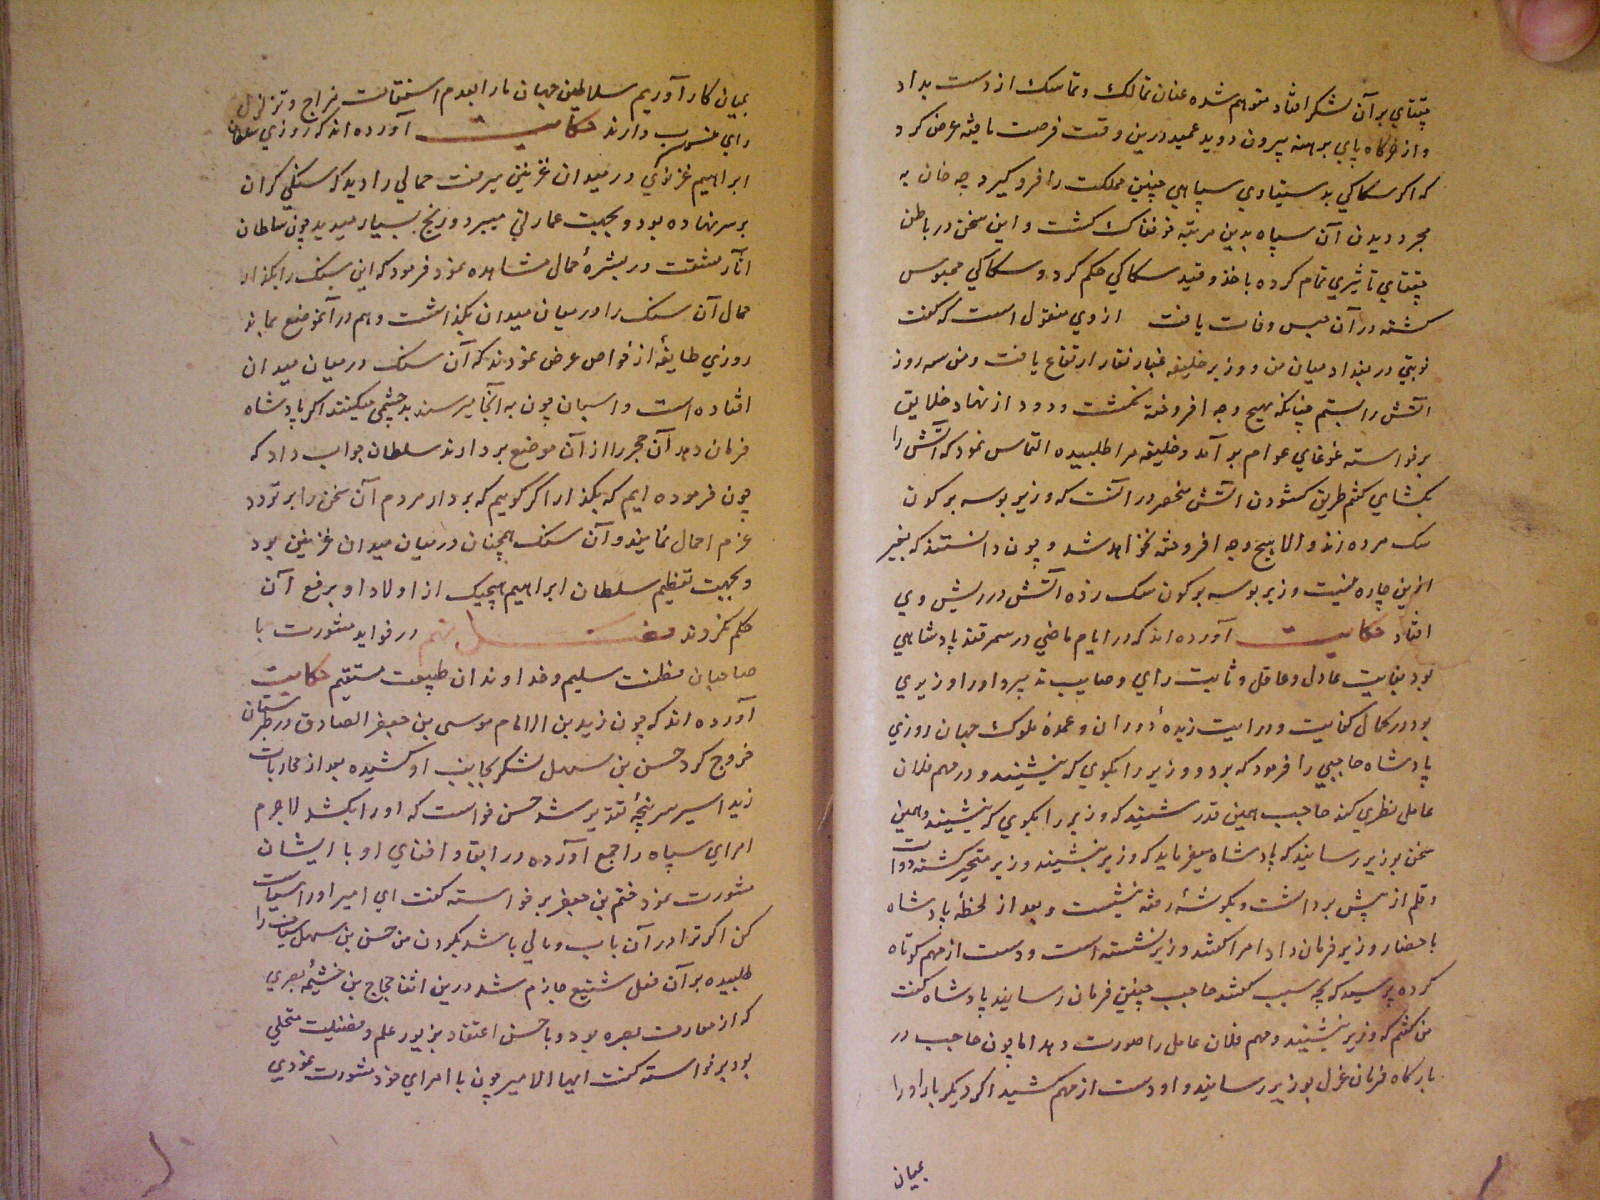 چغتای بر آن لشکر افتاد متوهم شده عنان تمالک و تماسک از دست بداد
و از خرگاه پای برهنه بیرون دوید عمید درین وقت فرصت یافته عرض کرد
که اگر سکاکی بدستیاری سپاهی چنین مملکت را فرو گیرد چه خان به
مجرد دیدن آن سپاه بدین مرتبه خوفناک گشت و این سخن در باطن
چغتای تاثیری تمام کرده باخذ و قید سکاکی حکم کرد و سکاکی محبوس
گشته در آن حبس وفات یافت از وی منقول است که گفت
نوبتی در بغداد میان من و وزیر خلیفه غبار نقار ارتفاع یافت و من سه روز
اتش را بستم چنانکه بهیچ وجه افروخته نگشت و دود از نهاد خلایق
برخواسته غوغای عوام بر آمد و خلیفه مرا طلبیده التماس نمود که آتش را
بگشای گفتم طریق گشودن اتش منحصر در انست که وزیر بوسه بر کون
سک مرده زند و الا بهیچ وجه افروخته نخواهد شد و چون دانستند که بغیر
ازین چاره نیست وزیر بوسه بر کون سک زده اتش در ریش وی
افتاد حکایت آورده اند که در ایام ماضی در سمرقند پادشاهی
بود بغایت عادل و عاقل و ثابت رای و صایب تدبیر و او را وزیری
بود در کمال کفایت و درایت زبدۀ دوران و عمدۀ ملوک جهان روزی
پادشاه حاجبی را فرمود که برد و وزیر را بکوی که بنشیند و در مهم فلان
عامل نظری کند حاجب همین قدر شنید که وزیر را بکوی که بنشیند و همین
سخن بوزیر رسانید که پادشاه میفرماید که وزیر بنشیند وزیر متحیر گشته دوات
و قلم از پیش برداشت و بکوشۀ رفته بنشست و بعد از لحظۀ پادشاه
باحضار وزیر فرمان داد امرا گفتند وزیر نشسته است و دست از مهم کوتاه
کرده پرسید که بچه سبب گفتند حاجب چنین فرمان رسانید پادشاه گفت
من گفتم که وزیر بنشیند و مهم فلان عامل را صورت دهد اما چون حاجب در
بارکاه فرمان عزل بوزیر رسانید و او دست از مهم کشید اکر دیکر بار او را
بمیان
بمیان کار آوریم سلاطین جهان ما را بعدم استقامت مزاج و تزلزل
رای منسوب دارند حکایت آورده اند که روزی سلطان
ابراهیم غزنوی در میدان غزنین میرفت حمالی را دید که سنکی کران
بر سر نهاده بود و بجهت عمارتی میبرد و رنج بسیار میدید چون سلطان
آثار مشقت در بشرۀ حمال مشاهده نمود فرمود که این سنک را بکذار
حمال آن سنک را در میان میدان بکذاشت و هم در آنموضع بماند
روزی طایفۀ از خواص عرض نمودند که آن سنک در میان میدان
افتاده است و اسبان چون به آنجا میرسند بد چشمی میکنند اکر پادشاه
فرمان دهد آن حجر را از آن موضع بردارند سلطان جواب داد که
چون فرموده ایم که بکذار اکر کوییم که بردار مردم آن سخن را بر تردد
عزم احمال نمایند و آن سنک همچنان در میان میدان غزنین بود
و بجهت تعظیم سلطان ابراهیم هیچیک از اولاد او برفع آن
حکم نکردند فصل نهم در فواید مشورت با
صاحبان فطنت سلیم و خداوندان طبیعت مستقیم حکایت
آورده اند که چون زید بن الامام موسی بن جعفر الصادق در طبرستان
خروج کرد حسن بن سهل لشکر بجانب او کشیده بعد از محاربات
زید اسیر سرپنجۀ تقدیر شد حسن خواست که او را بکشد لاجرم
امرای سپاه را جمع آورده در ابقا و افنای او با ایشان
مشورت نمود ختم بن جعفر برخواسته گفت ای امیر او را سیاست
کن اکر ترا در آن باب وبالی باشد بکردن من حسن بن سهل سیاف را
طلبیده بر آن فعل شنیع جازم شد درین اثنا حجاج بن خشیمه بصری
که از معارف بصره بود و با حسن اعتقاد بزیور علم و فضیلت متحلی
بود برخواسته گفت ایها الامیر چون با امرای خود مشورت نمودی